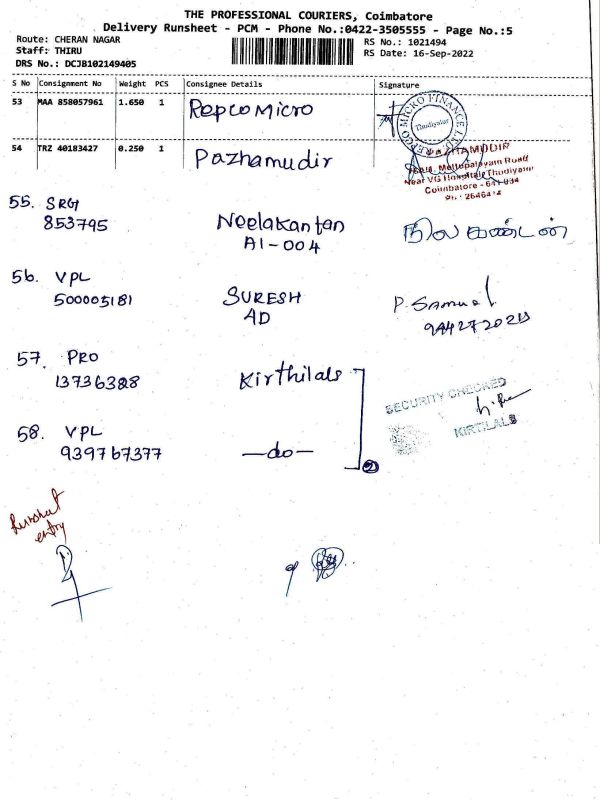 THE PROFESSIONAL COURIERS, Coimbatore
Delivery Runsheet - PCM - Phone No.:0422-3505555 - Page No.:5
Route: CHERAN NAGAR
Staff: THIRU
DRS No.: DCJB102149405
RS No.: 1021494
RS Date: 16-Sep-2022
S No Consignment No Weight PCS Consignee Details Signature
53 MAA 858057961 1.650 1 Repco Micro
REPCO MICRO FINANCE LTD.
Thudiyalur
54 TRZ 40183427 0.250 1 Pazhamudir
PAZHAMUDIR
Mettupalayam Road
Near VG Hospital, Thudiyalur
Coimbatore - 641 034
55. SRG Neelakantan நீலகண்டன்
853795 A1-004
56. VPL SURESH P. Samuel
500005181 AD
57. PRO Kirthilals
13736328
SECURITY CHECKED
KIRTILALS
58. VPL —do—
939767377
2
Runsheet
entry